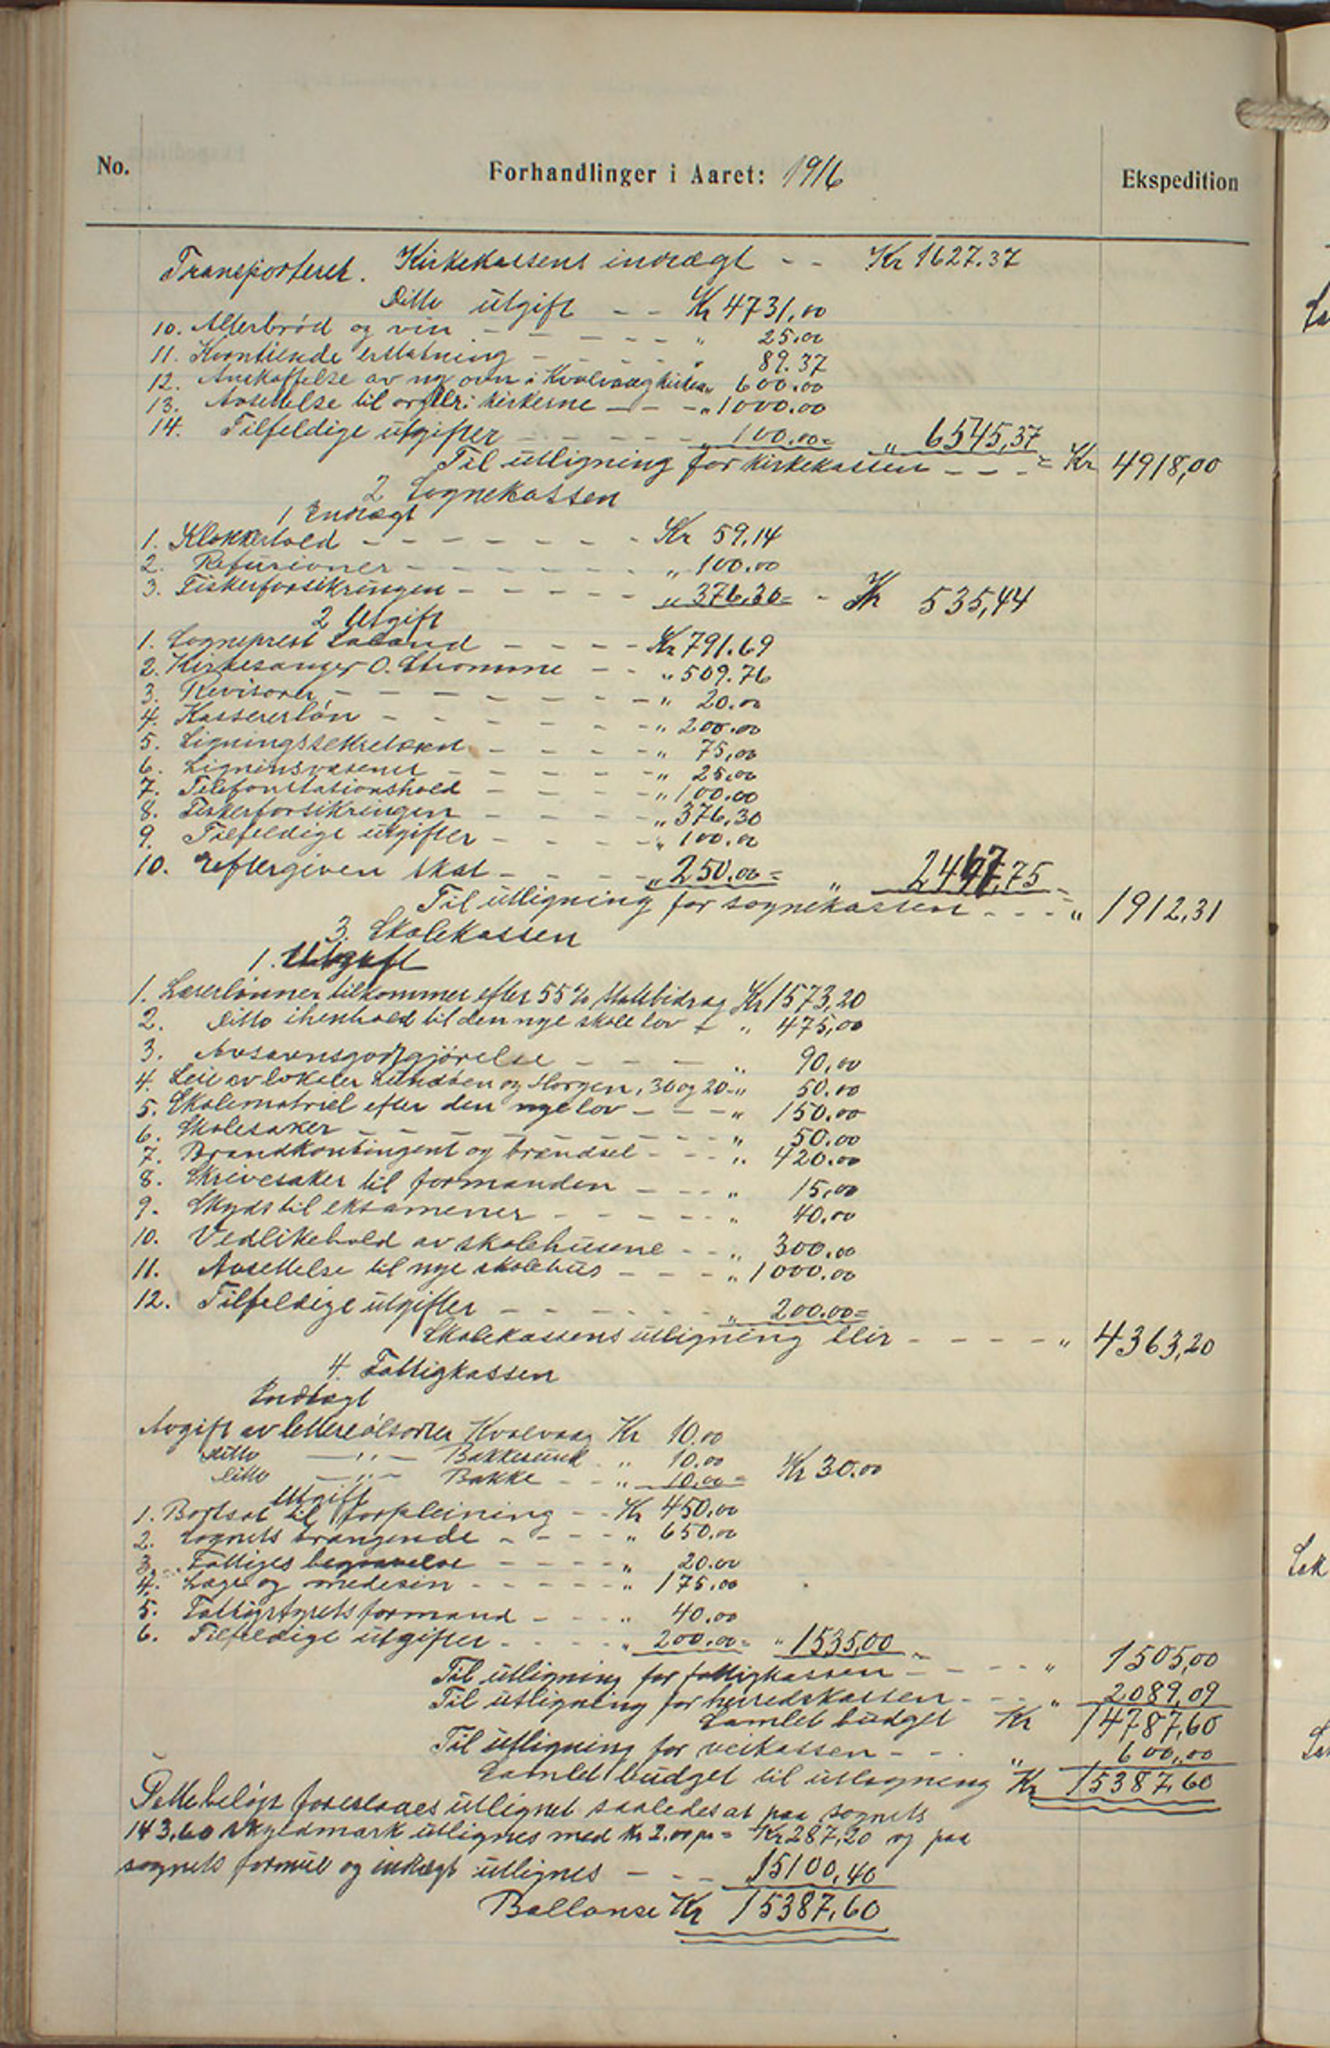 No.
Forhandlinger i Aaret: 1916
Ekspedition
Transporteret. Kirkekassens indtægt - - Kr 1627.37
Ditto utgift - - Kr 4731,00
10. Alterbrød og vin - - - - - " 25.00
11. Korntiende erstatning - - - - " 89.37
12. Anskaffelse av ny ovn i Kvalvaag kirke " 600.00
13. Avsettelse til orgler i kirkerne - - - " 1000.00
14. Tilfeldige utgifter - - - - - " 100.00 = " 6545,37
Til utligning for kirkekassen - - - = Kr 4918,00
2 Sognekassen
1 Indtægt
1. Klokkerhold - - - - - - - Kr 59.14
2. Refusioner - - - - - - " 100.00
3. Fiskerforsikringen - - - - - " 376,30 = - Kr 535,44
2 Utgift
1. Sogneprest Laland - - - - Kr 791.69
2. Kirkesanger O. Strømme - - " 509.76
3. Revisorer - - - - - - - " 20.00
4. Kassererløn - - - - - - " 200.00
5. Ligningssekretæren - - - - " 75,00
6. Ligninsvæsenet - - - - - " 25,00
7. Telefonstationshold - - - - " 100.00
8. Fiskerforsikringen - - - - " 376,30
9. Tilfeldige utgifter - - - - " 100.00
10. Eftergiven skat - - - - " 250.00 = " 2447,75
Til utligning for sognekassen - - - " 1912,31
3. Skolekassen
1. Utgift
1. Lærerlønner tilkommer efter 55% statsbidrag Kr 1573,20
2. Ditto ihenhold til den nye skole lov - " 475,00
3. Avsavnsgodtgjørelse - - - " 90,00
4. Leie av lokaler Lundøen og Horgen, 30 og 20 - " 50.00
5. Skolematriel efter den nye lov - - - " 150.00
6. Skolesaker - - - - - - - - " 50.00
7. Brandkontingent og brændsel - - - " 420.00
8. Skrivesaker til formanden - - - " 15,00
9. Skyds til eksamener - - - - - " 40.00
10. Vedlikehold av skolehusene - - " 300.00
11. Avsettelse til nye skolehus - - - " 1000.00
12. Tilfeldige utgifter - - - - - - " 200.00 =
Skolekassens utligning blir - - - - " 4363,20
4. Fattigkassen
Indtægt
Avgift av lettere ølsorter Kvalvaag Kr 10.00
ditto - " - Bakkesund " 10.00
Ditto - " - Bakke - - " 10,00 = Kr 30.00
Utgift
1. Bortsat til forpleining - - Kr 450,00
2. Sognets trængende - - - - " 650.00
3. Fattiges begravelse - - - - " 20.00
4. Læge og medesin - - - - - " 175.00
5. Fattigstyrets formand - - - " 40.00
6. Tilfeldige utgifter - - - - " 200.00 = " 1535,00
Til utligning for fattigkassen - - - - " 1505,00
Til utligning for herredskassen - - - " 2089,09
Samlet budget Kr 14787,60
Til utligning for veikassen - - . " 600,00
Samlet budget til utligning Kr 15387,60
Dette beløp foreslaaes utlignet saaledes at paa sognets
143,60 skyldmark utlignes med Kr 2.00 pr = Kr 287,20 og paa
sognets formue og indtægt utlignes - - - 15100,40
Ballanse Kr 15387,60